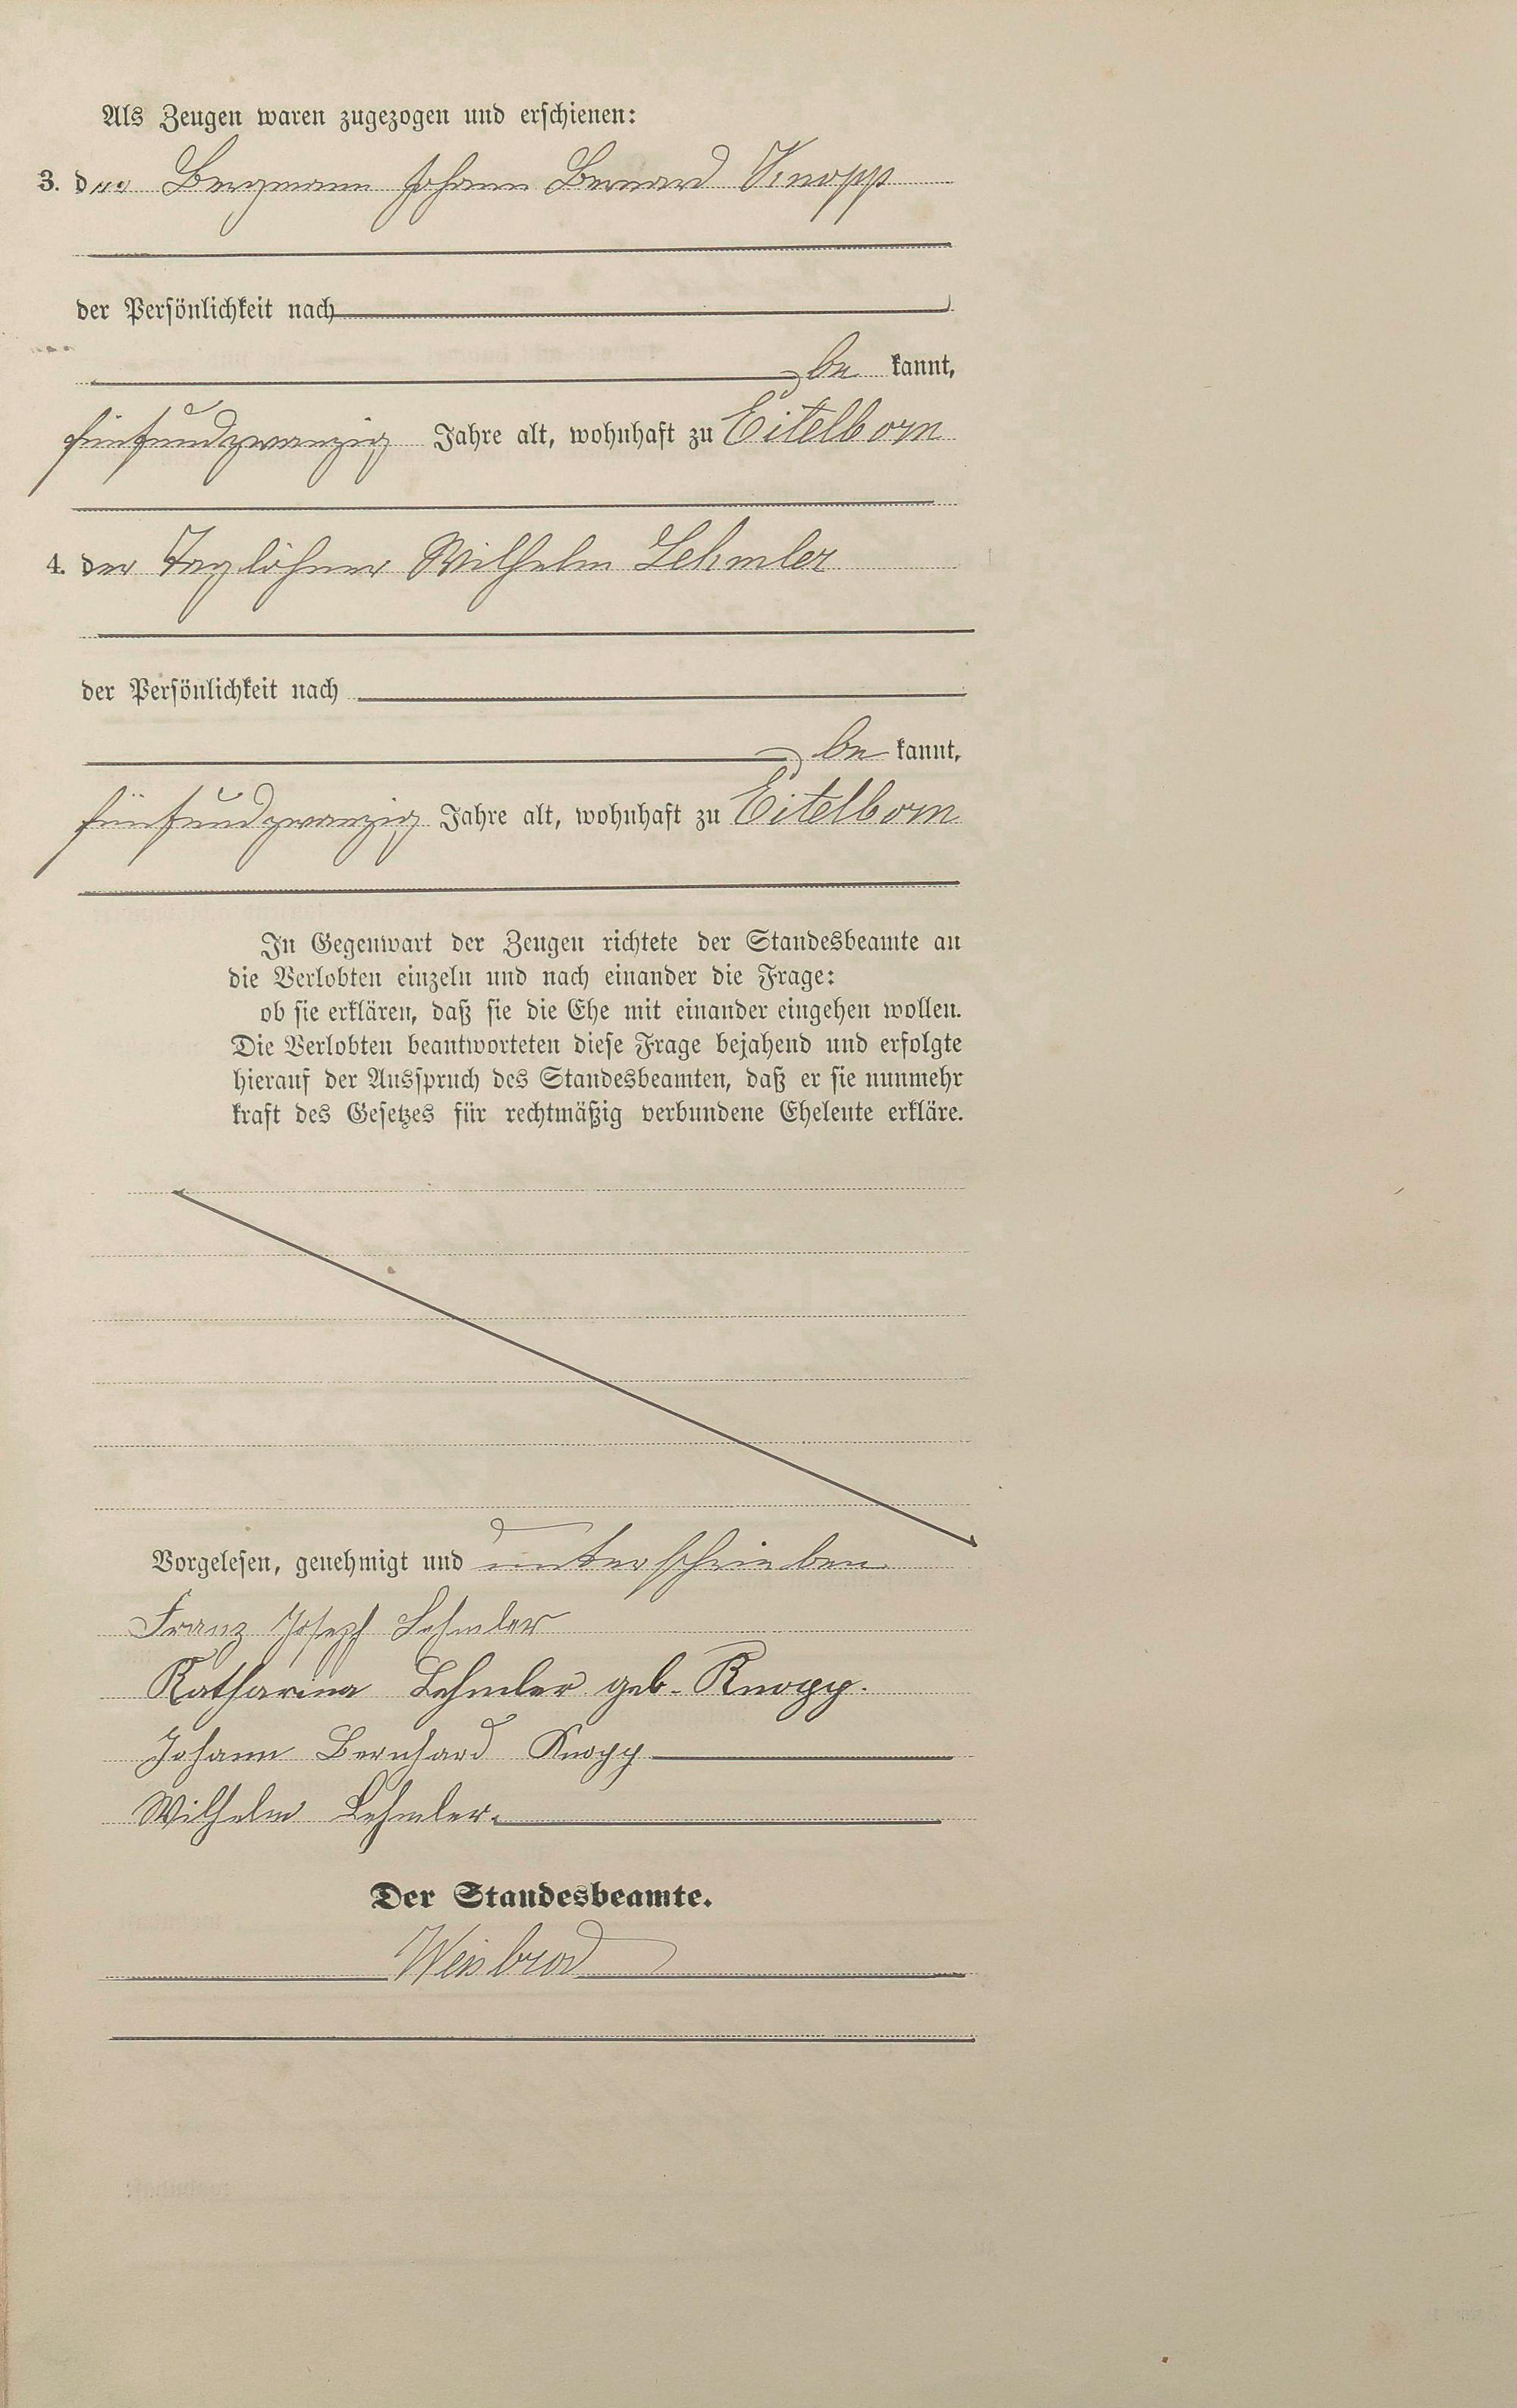 Als Zeugen waren zugezogen und erschienen:
3. der Bergmann Johann Bernard Knopp
der Persönlichkeit nach
be kannt,
fünfundzwanzig Jahre alt, wohnhaft zu Eitelborn
4. der Taglöhner Wilhelm Lehmler
der Persönlichkeit nach
be kannt,
fünfundzwanzig Jahre alt, wohnhaft zu Eitelborn
In Gegenwart der Zeugen richtete der Standesbeamte an
die Verlobten einzeln und nach einander die Frage:
ob sie erklären, daß sie die Ehe mit einander eingehen wollen.
Die Verlobten beantworteten diese Frage bejahend und erfolgte
hierauf der Ausspruch des Standesbeamten, daß er sie nunmehr
kraft des Gesetzes für rechtmäßig verbundene Eheleute erkläre.
Vorgelesen, genehmigt und unterschrieben
Franz Joseph Lehmler
Katharina Lehmler geb. Knopp.
Johann Bernhard Knopp
Wilhelm Lehmler.
Der Standesbeamte.
Weisbrod